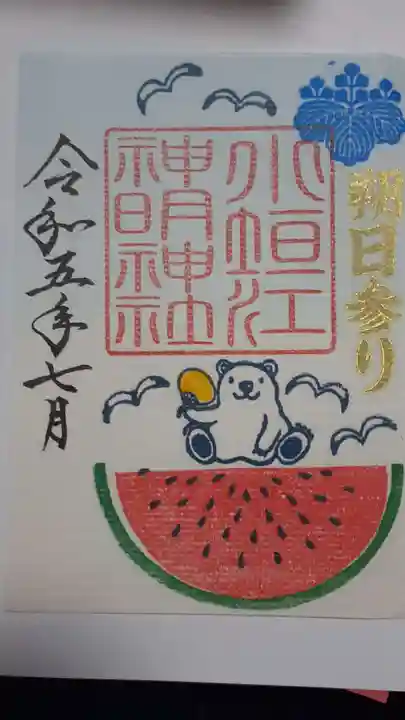 朔日参り
小垣江
神明神社
令和五年七月